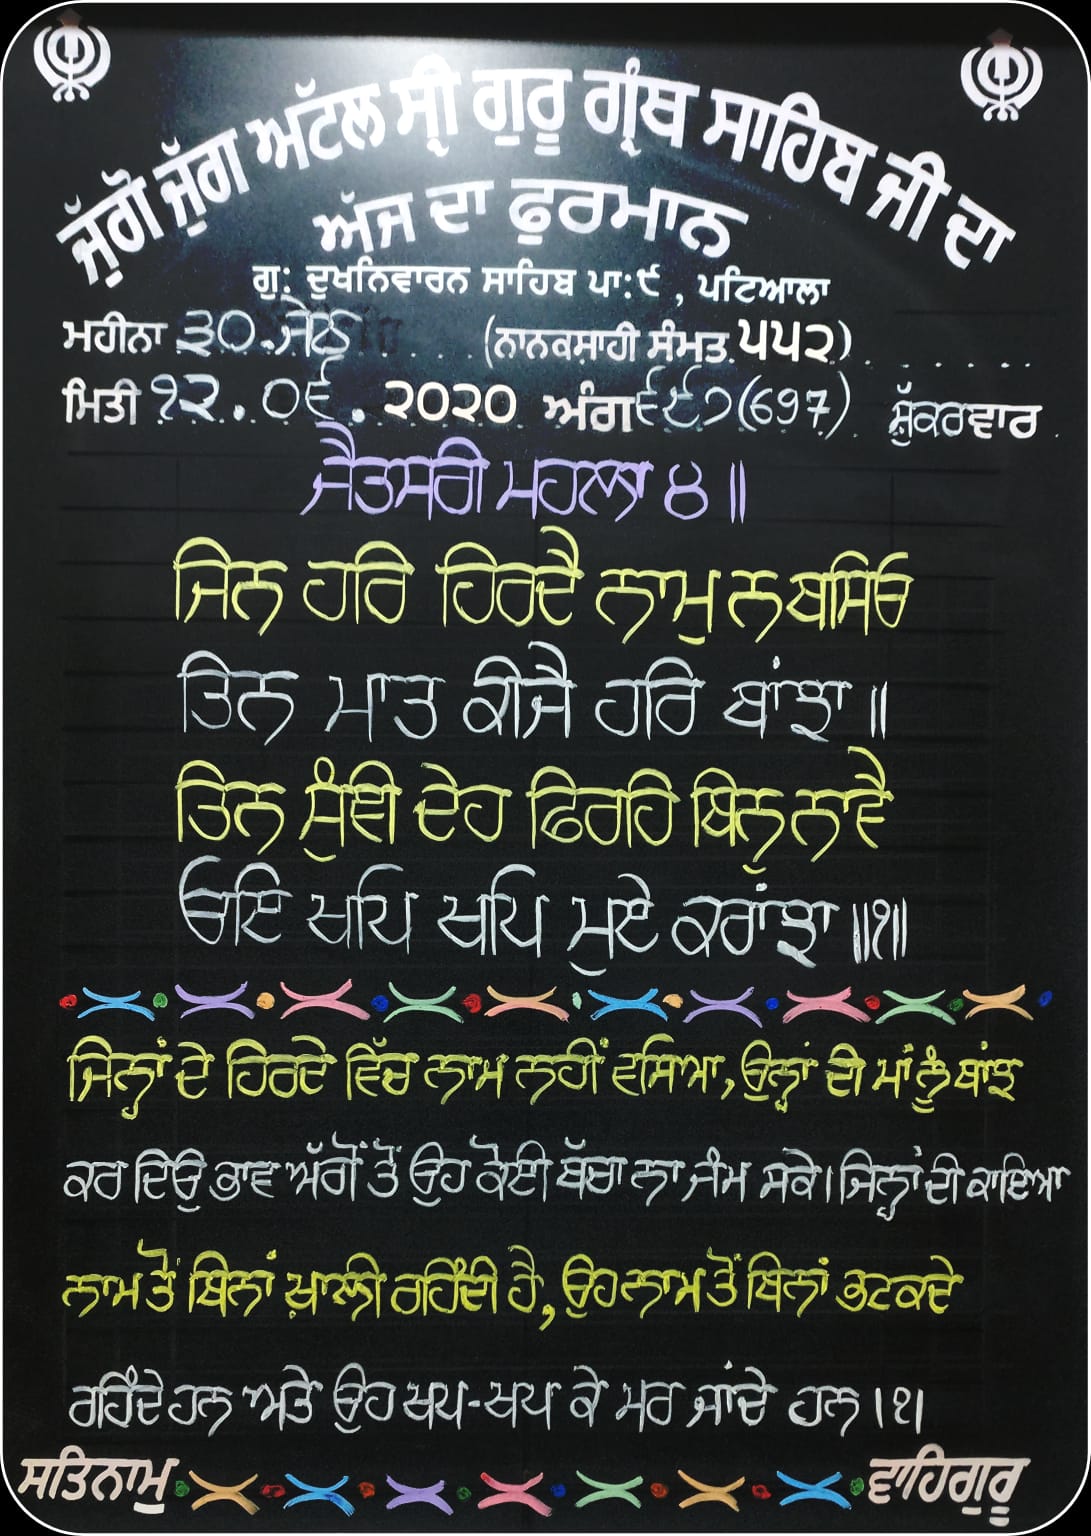 ਜੁੱਗੋ ਜੁੱਗ ਅਟੱਲ ਸ੍ਰੀ ਗੁਰੂ ਗ੍ਰੰਥ ਸਾਹਿਬ ਜੀ ਦਾ
ਅੱਜ ਦਾ ਫੁਰਮਾਨ
ਗੁ: ਦੁਖਨਿਵਾਰਨ ਸਾਹਿਬ ਪਾ:੯ , ਪਟਿਆਲਾ
ਮਹੀਨਾ ੩੦.ਜੇਠ (ਨਾਨਕਸ਼ਾਹੀ ਸੰਮਤ ੫੫੨)
ਮਿਤੀ ੧੨.੦੬.੨੦੨੦ ਅੰਗ ੬੯੭(697) ਸ਼ੁੱਕਰਵਾਰ
ਜੈਤਸਰੀ ਮਹਲਾ ੪ ॥
ਜਿਨ ਹਰਿ ਹਿਰਦੈ ਨਾਮੁ ਨ ਬਸਿਓ
ਤਿਨ ਮਾਤ ਕੀਜੈ ਹਰਿ ਬਾਂਝਾ ॥
ਤਿਨ ਸੁੰਞੀ ਦੇਹ ਫਿਰਹਿ ਬਿਨੁ ਨਾਵੈ
ਓਇ ਖਪਿ ਖਪਿ ਮੁਏ ਕਰਾਂਝਾ ॥੧॥
ਜਿਨ੍ਹਾਂ ਦੇ ਹਿਰਦੇ ਵਿੱਚ ਨਾਮ ਨਹੀਂ ਵਸਿਆ, ਉਨ੍ਹਾਂ ਦੀ ਮਾਂ ਨੂੰ ਬਾਂਝ
ਕਰ ਦਿਉ ਭਾਵ ਅੱਗੋਂ ਤੋਂ ਉਹ ਕੋਈ ਬੱਚਾ ਨਾ ਜੰਮ ਸਕੇ। ਜਿਨ੍ਹਾਂ ਦੀ ਕਾਇਆ
ਨਾਮ ਤੋਂ ਬਿਨਾਂ ਖ਼ਾਲੀ ਰਹਿੰਦੀ ਹੈ, ਉਹ ਨਾਮ ਤੋਂ ਬਿਨਾਂ ਭਟਕਦੇ
ਰਹਿੰਦੇ ਹਨ ਅਤੇ ਉਹ ਖਪ-ਖਪ ਕੇ ਮਰ ਜਾਂਦੇ ਹਨ ।੧।
ਸਤਿਨਾਮੁ ਵਾਹਿਗੁਰੂ